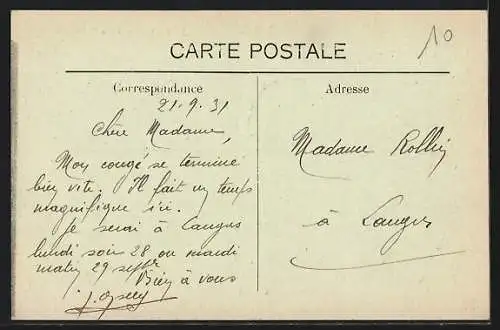 10
CARTE POSTALE
Correspondance
21.9.31
Chère Madame,
Mon congé se termine
bien vite. Il fait un temps
magnifique ici.
Je serai à Langres
lundi soir 28 ou mardi
matin 29 septbre
Bien à vous
Adresse
Madame
à Langres